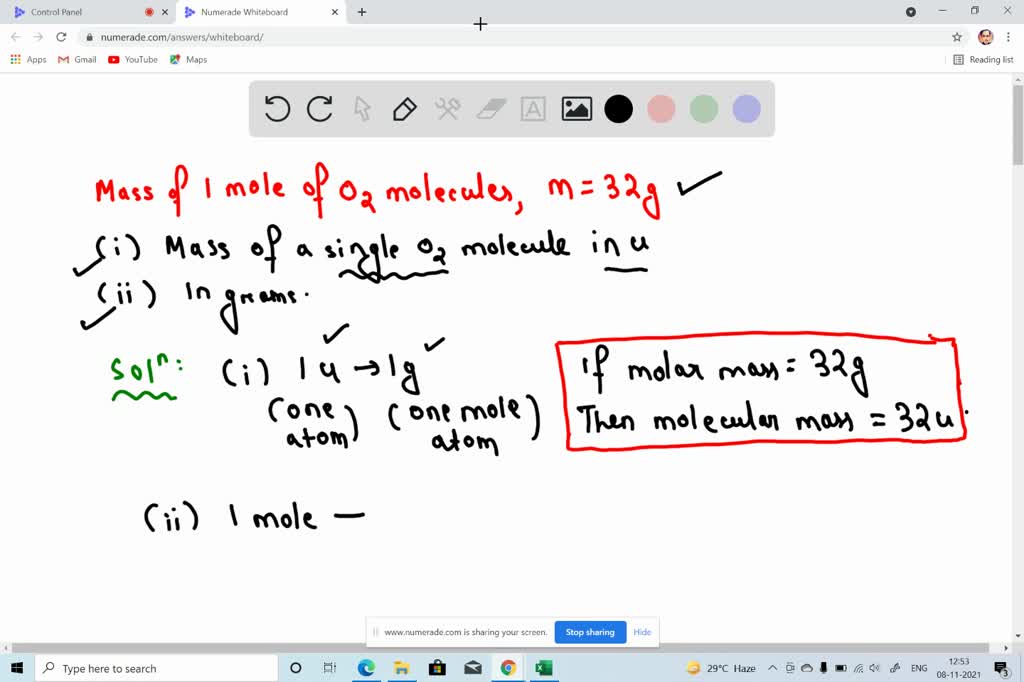 Control Panel
Numerade Whiteboard
numerade.com/answers/whiteboard/
Apps Gmail YouTube Maps Reading list
A
Mass of 1 mole of O₂ molecules, m = 32g
(i) Mass of a single O₂ molecule in u
(ii) In grams.
Solⁿ: (i) 1u → 1g
(one atom) (one mole atom)
If molar mass = 32g
Then molecular mass = 32u.
(ii) 1 mole —
www.numerade.com is sharing your screen. Stop sharing Hide
Type here to search
29°C Haze ENG 12:53
08-11-2021
3